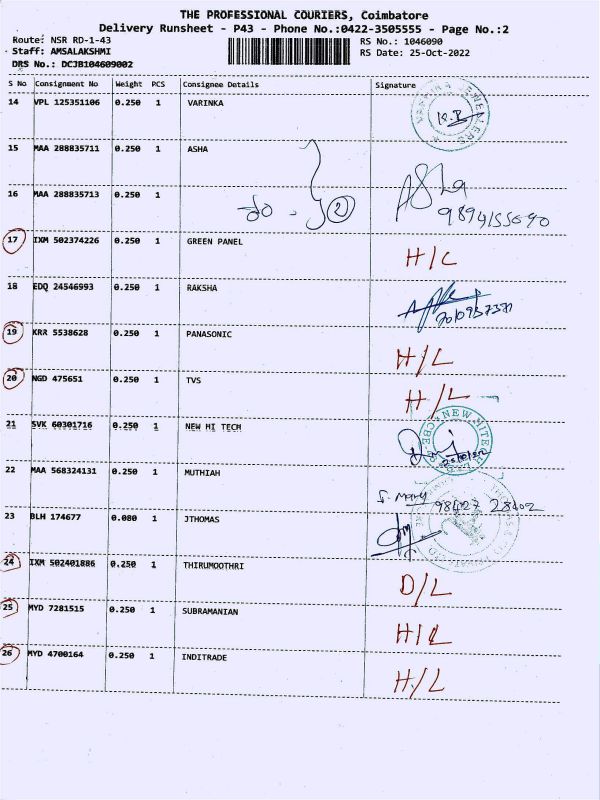 THE PROFESSIONAL COURIERS, Coimbatore
Delivery Runsheet - P43 - Phone No.:0422-3505555 - Page No.:2
Route: NSR RD-1-43 RS No.: 1046090
Staff: AMSALAKSHMI RS Date: 25-Oct-2022
DRS No.: DCJB104609002
S No Consignment No Weight PCS Consignee Details Signature
14 VPL 125351106 0.250 1 VARINKA K.B
15 MAA 288835711 0.250 1 ASHA
16 MAA 288835713 0.250 1 2 Asha
9894155690
17 IXM 502374226 0.250 1 GREEN PANEL H/C
18 EDQ 24546993 0.250 1 RAKSHA
19 KRR 5538628 0.250 1 PANASONIC H/L
20 NGD 475651 0.250 1 TVS H/L
21 SVK 60301716 0.250 1 NEW HI TECH
22 MAA 568324131 0.250 1 MUTHIAH S. Mary
98427 28402
23 BLH 174677 0.080 1 JTHOMAS
24 IXM 502401886 0.250 1 THIRUMOOTHRI D/L
25 MYD 7281515 0.250 1 SUBRAMANIAN H/L
26 MYD 4700164 0.250 1 INDITRADE H/L